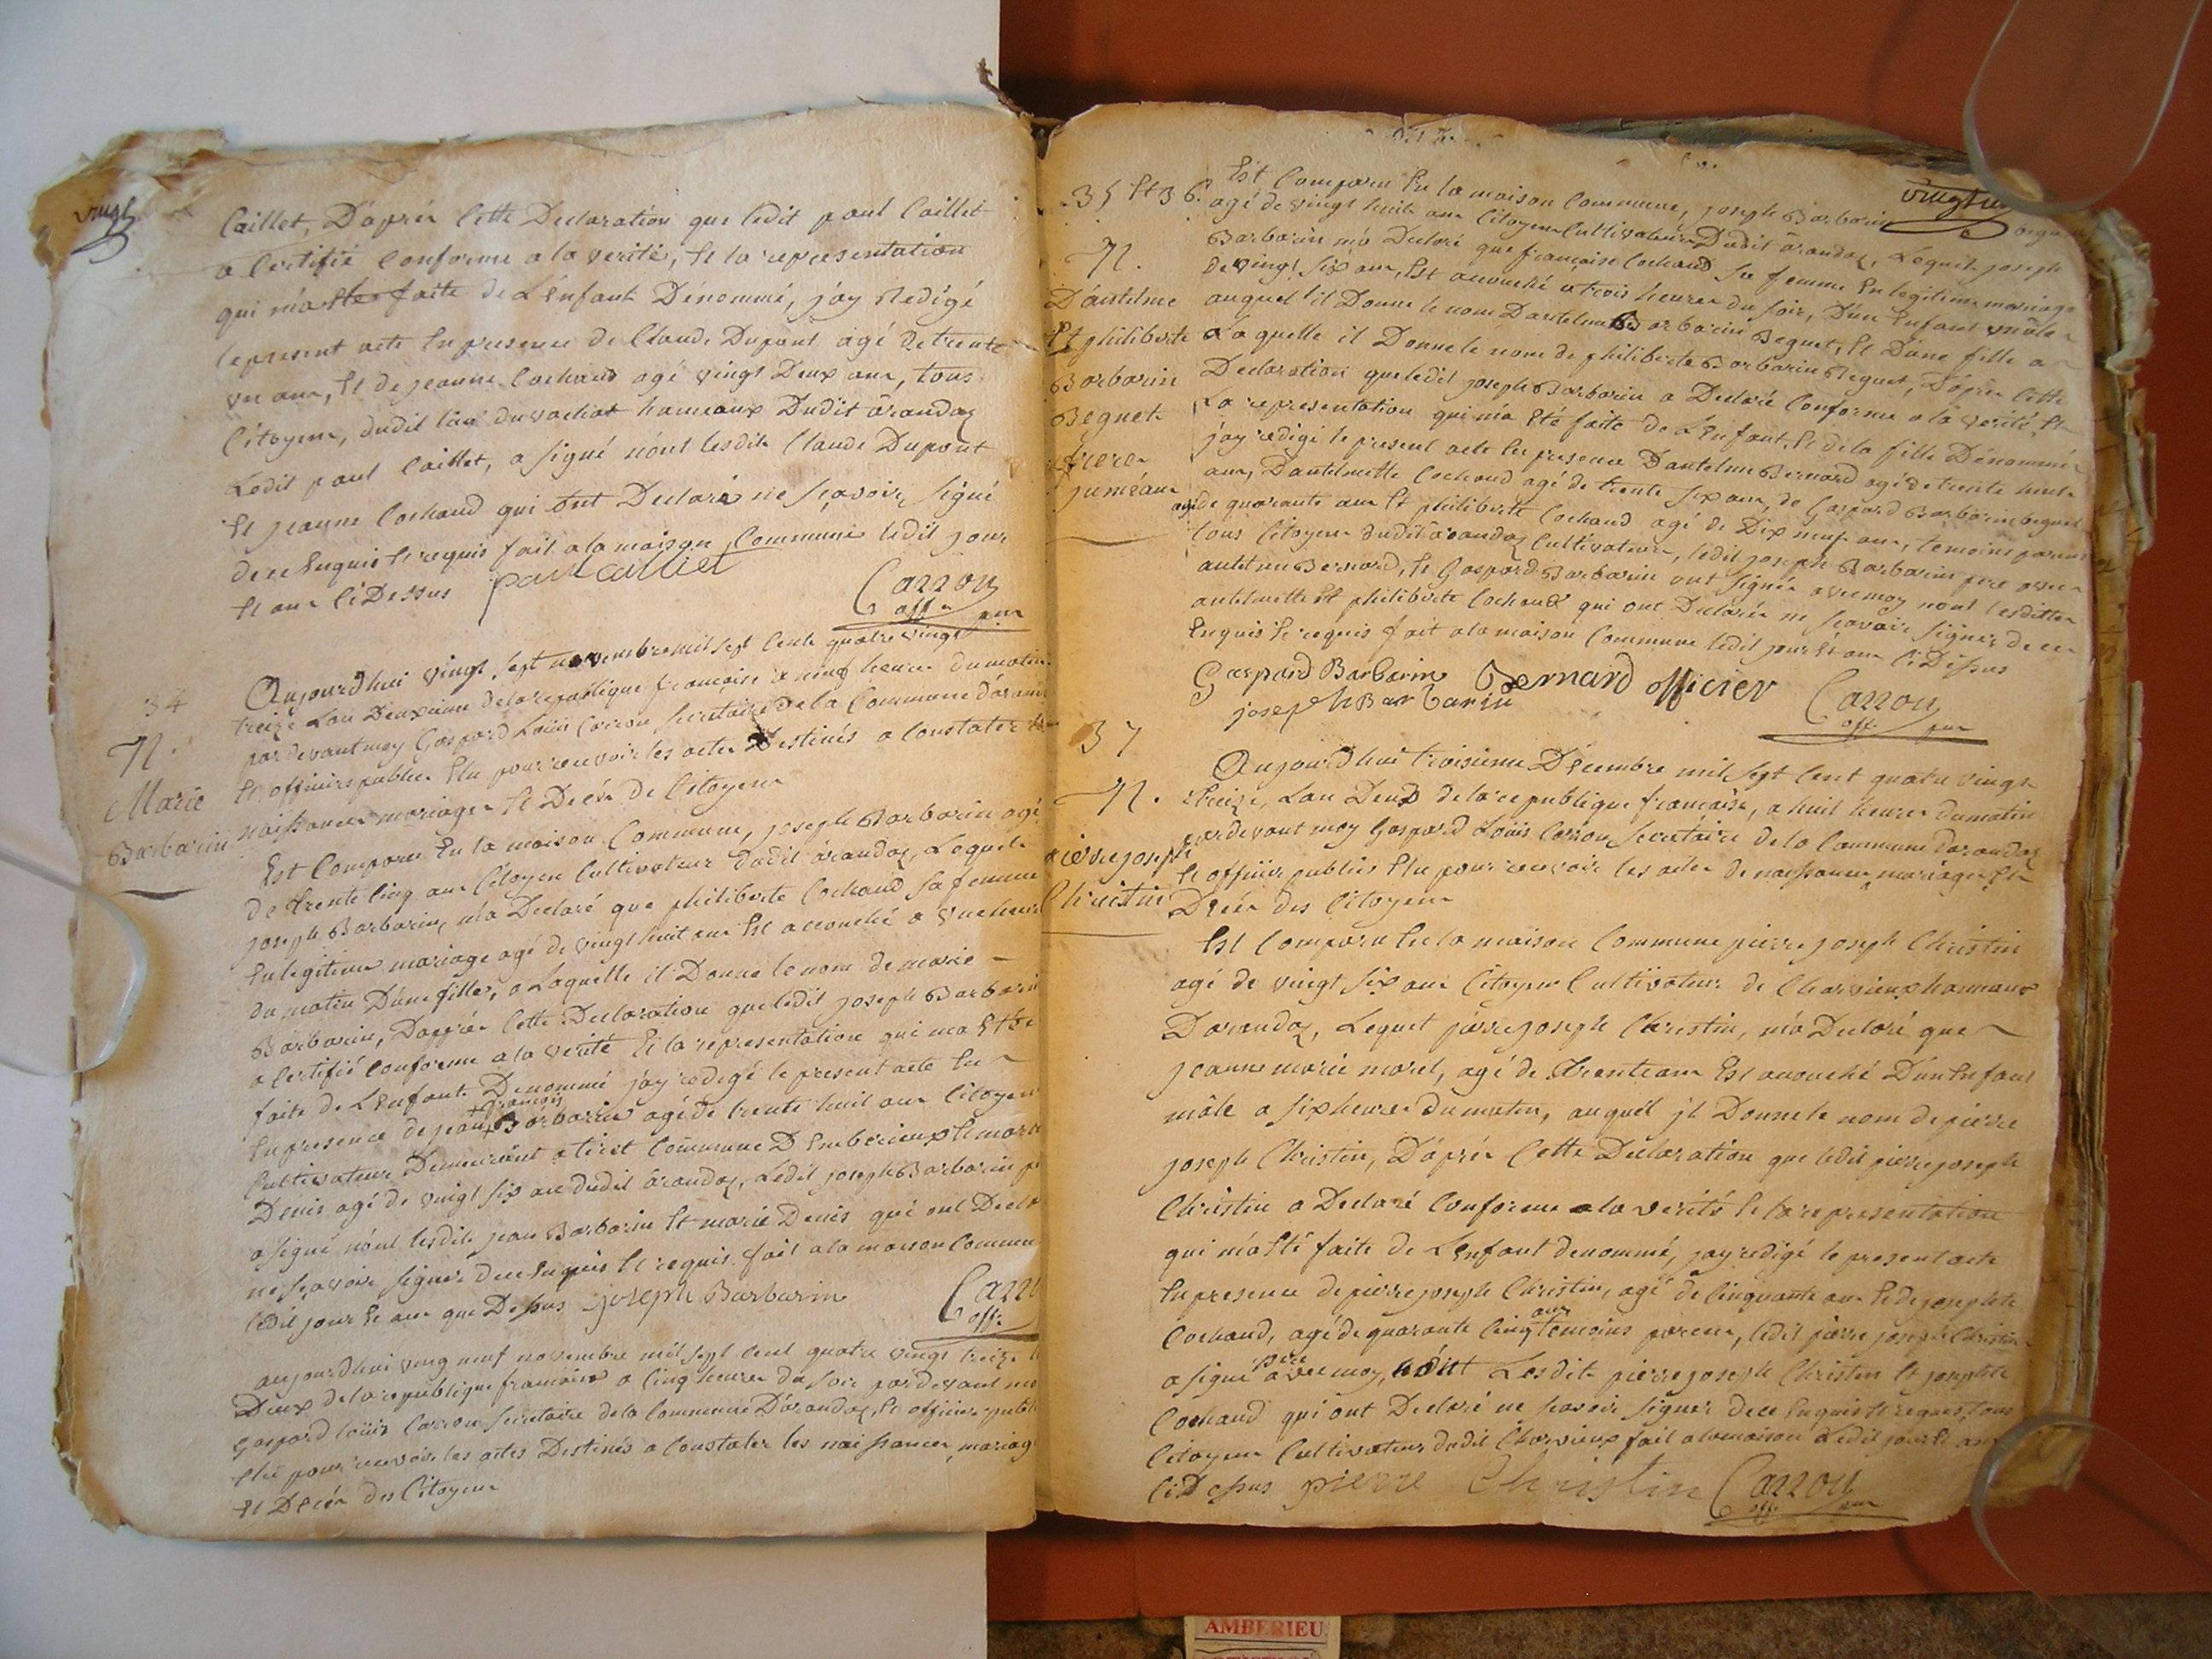 vingt
Caillet, D'après Cette Declaration que ledit paul Caillet
a Certifié Conforme a la verité, Et la representation
qui m'a Etee faite de L'Enfant Dénommé, j'ay Redigé
le present acte En presence de Claude Dupont agé de trente
un ans, Et de jeanne Cochaud agé vingt Deux ans, tous
Citoyens, dudit lieu du vachat hameaux Dudit àrandaz
Ledit paul Caillet, a signé nónt lesdits Claude Dupont
Et jeanne Cochaud qui ont Declaré ne sçavoir signé
de ce Enquis Et requis fait a la maison Commune ledit jour
Et an Ci Dessus paul cailliet
Carron
off. pur
34
N.
Marie
Barbarin
Aujourd'hui vingt sept novembre mil sept Cents quatre vingt
treize Lan Deuxieme de la republique francoise a neuf heures du matin
par devant moy Gaspard Loüis Carron secretaire de la Commune d'àrandaz
Et officiers publics Elu pour recevoir les actes Destinés a Constater les
naissances mariages Et Decés de Citoyens
Est Comparu En la maison Commune, joseph Barbarin agé
de trente Cinq ans Citoyen Cultivateur dudit àrandaz, Lequel
joseph Barbarin, m'a Declaré que philiberte Cochaud sa femme
En legitime mariage agé de vingt huit ans Est accouché a une heure
du matin D'une fille, a Laquelle il Donne le nom de marie
Barbarin, D'après Cette Declaration que ledit joseph Barbarin
a Certifié Conforme a la verité Et la representation qui m'a Eté
faite de L'Enfant Denommé j'ay redigé le present acte En
En presence de jean + françois Barbarin agé de trente huit ans Citoyen
Cultivateur Demeurant a tiret Commune D'Emberieux Et marie
Denis agé de vingt six ans dudit àrandaz, Ledit joseph Barbarin
a signé nónt lesdits jean Barbarin Et marie Denis qui ont Declaré
ne sçavoir signer de ce Enquis Et requis fait a la maison Commune
ledit jour Et an que Dessus joseph Barbarin
Carron
off.
aujourd'hui ving neuf novembre mil sept Cent quatre vingt treize
Deux de la republique francoise a Cinq heures du soir par devant moy
Gaspard loüis Carron secretaire de la Commune D'àrandaz, Et officiers publics
Elu pour recevoir les actes Destinés a Constater les naissances, mariages
Et Decés des Citoyens
35 Et 36.
N.
D'antelme
Et philiberte
Barbarin
Beguet
freres
juméaux
Est Comparu En la maison Commune, joseph Barbarin
agé de vingt huit ans Citoyen Cultivateur Dudit àrandaz, Lequel joseph
Barbarin m'a Declaré que francoise Cochaud sa femme En legitime mariage
de vingt six ans, Est accouché a trois heures du soir, D'un Enfant mâle
auquel il Donne le nom D'antelme Barbarin Beguet, Et D'une fille a
a laquelle il Donne le nom de philiberte Barbarin Beguet, D'après Cette
Declaration que ledit joseph Barbarin a Declaré Conforme a la verité, Et
La representation qui m'a Eté faite de L'Enfant, Et de la fille Dénommés
j'ay redigé le present acte En presence D'antelme Bernard agé de trente huit
ans, D'antelmette Cochaud agé de trente six ans, de Gaspard Barbarin beguet
agé de quarante ans Et philiberte Cochaud agé de Dix neuf ans, temoins parens
tous Citoyens dudit àrandaz Cultivateurs, ledit joseph Barbarin pere avec
antelme Bernard, Et Gaspard Barbarin ont signés avec moy nónt lesdittes
antelmette Et philiberte Cochaud qui ont Declarés ne sçavoir signer de ce
Enquis Et requis fait a la maison Commune ledit jour Et an Ci Dessus
Gaspard Barbarin Bernard officier
joseph Barbarin Carron
off. pur
37
N.
pierre joseph
Christin
Aujourd'hui troisieme Décembre mil sept Cent quatre vingt
treize, Lan Deux de la republique francoise, a huit heures du matin
par devant moy Gaspard Loüis Carron secretaire de la Commune d'arandaz
Et officier publics Elu pour recevoir les actes de naissances, mariages Et
Decés des Citoyens
Est Comparu En la maison Commune pierre joseph Christin
agé de vingt six ans Citoyen Cultivateur de Charvieux hameaux
D'arandaz, Lequel pierre joseph Christin, m'a Declaré que
jeanne marie morel, agé de Trente ans Est acouché D'un Enfant
mâle a six heures du matin, auquél jl Donne le nom de pierre
joseph Christin, D'après Cette Declaration que ledit pierre joseph
Christin a Declaré Conforme a la verité Et la representation
qui m'a Eté faite de L'Enfant denommé, j'ay redigé le present acte
En presence de pierre joseph Christin, agé de Cinquante ans Et de josephte
Cochaud, agé de quarante Cinq ans temoins parens, ledit pierre joseph Christin
a signé pere avec moy, nónt Lesdits pierre joseph Christin Et josephte
Cochaud qui ont Declaré ne sçavoir signer de ce Enquis Et requis, tous
Citoyens Cultivateurs dudit Charvieux fait a la maison Ledit jour Et an
Ci Dessus pierre Christin Carron
off. pur
AMBERIEU